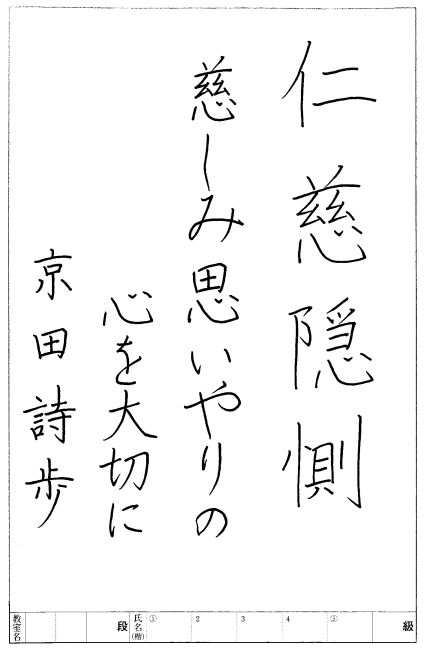 仁慈隠惻
慈しみ思いやりの
心を大切に
京田詩歩
級
⑤
4
3
2
①
氏名(楷)
段
教室名